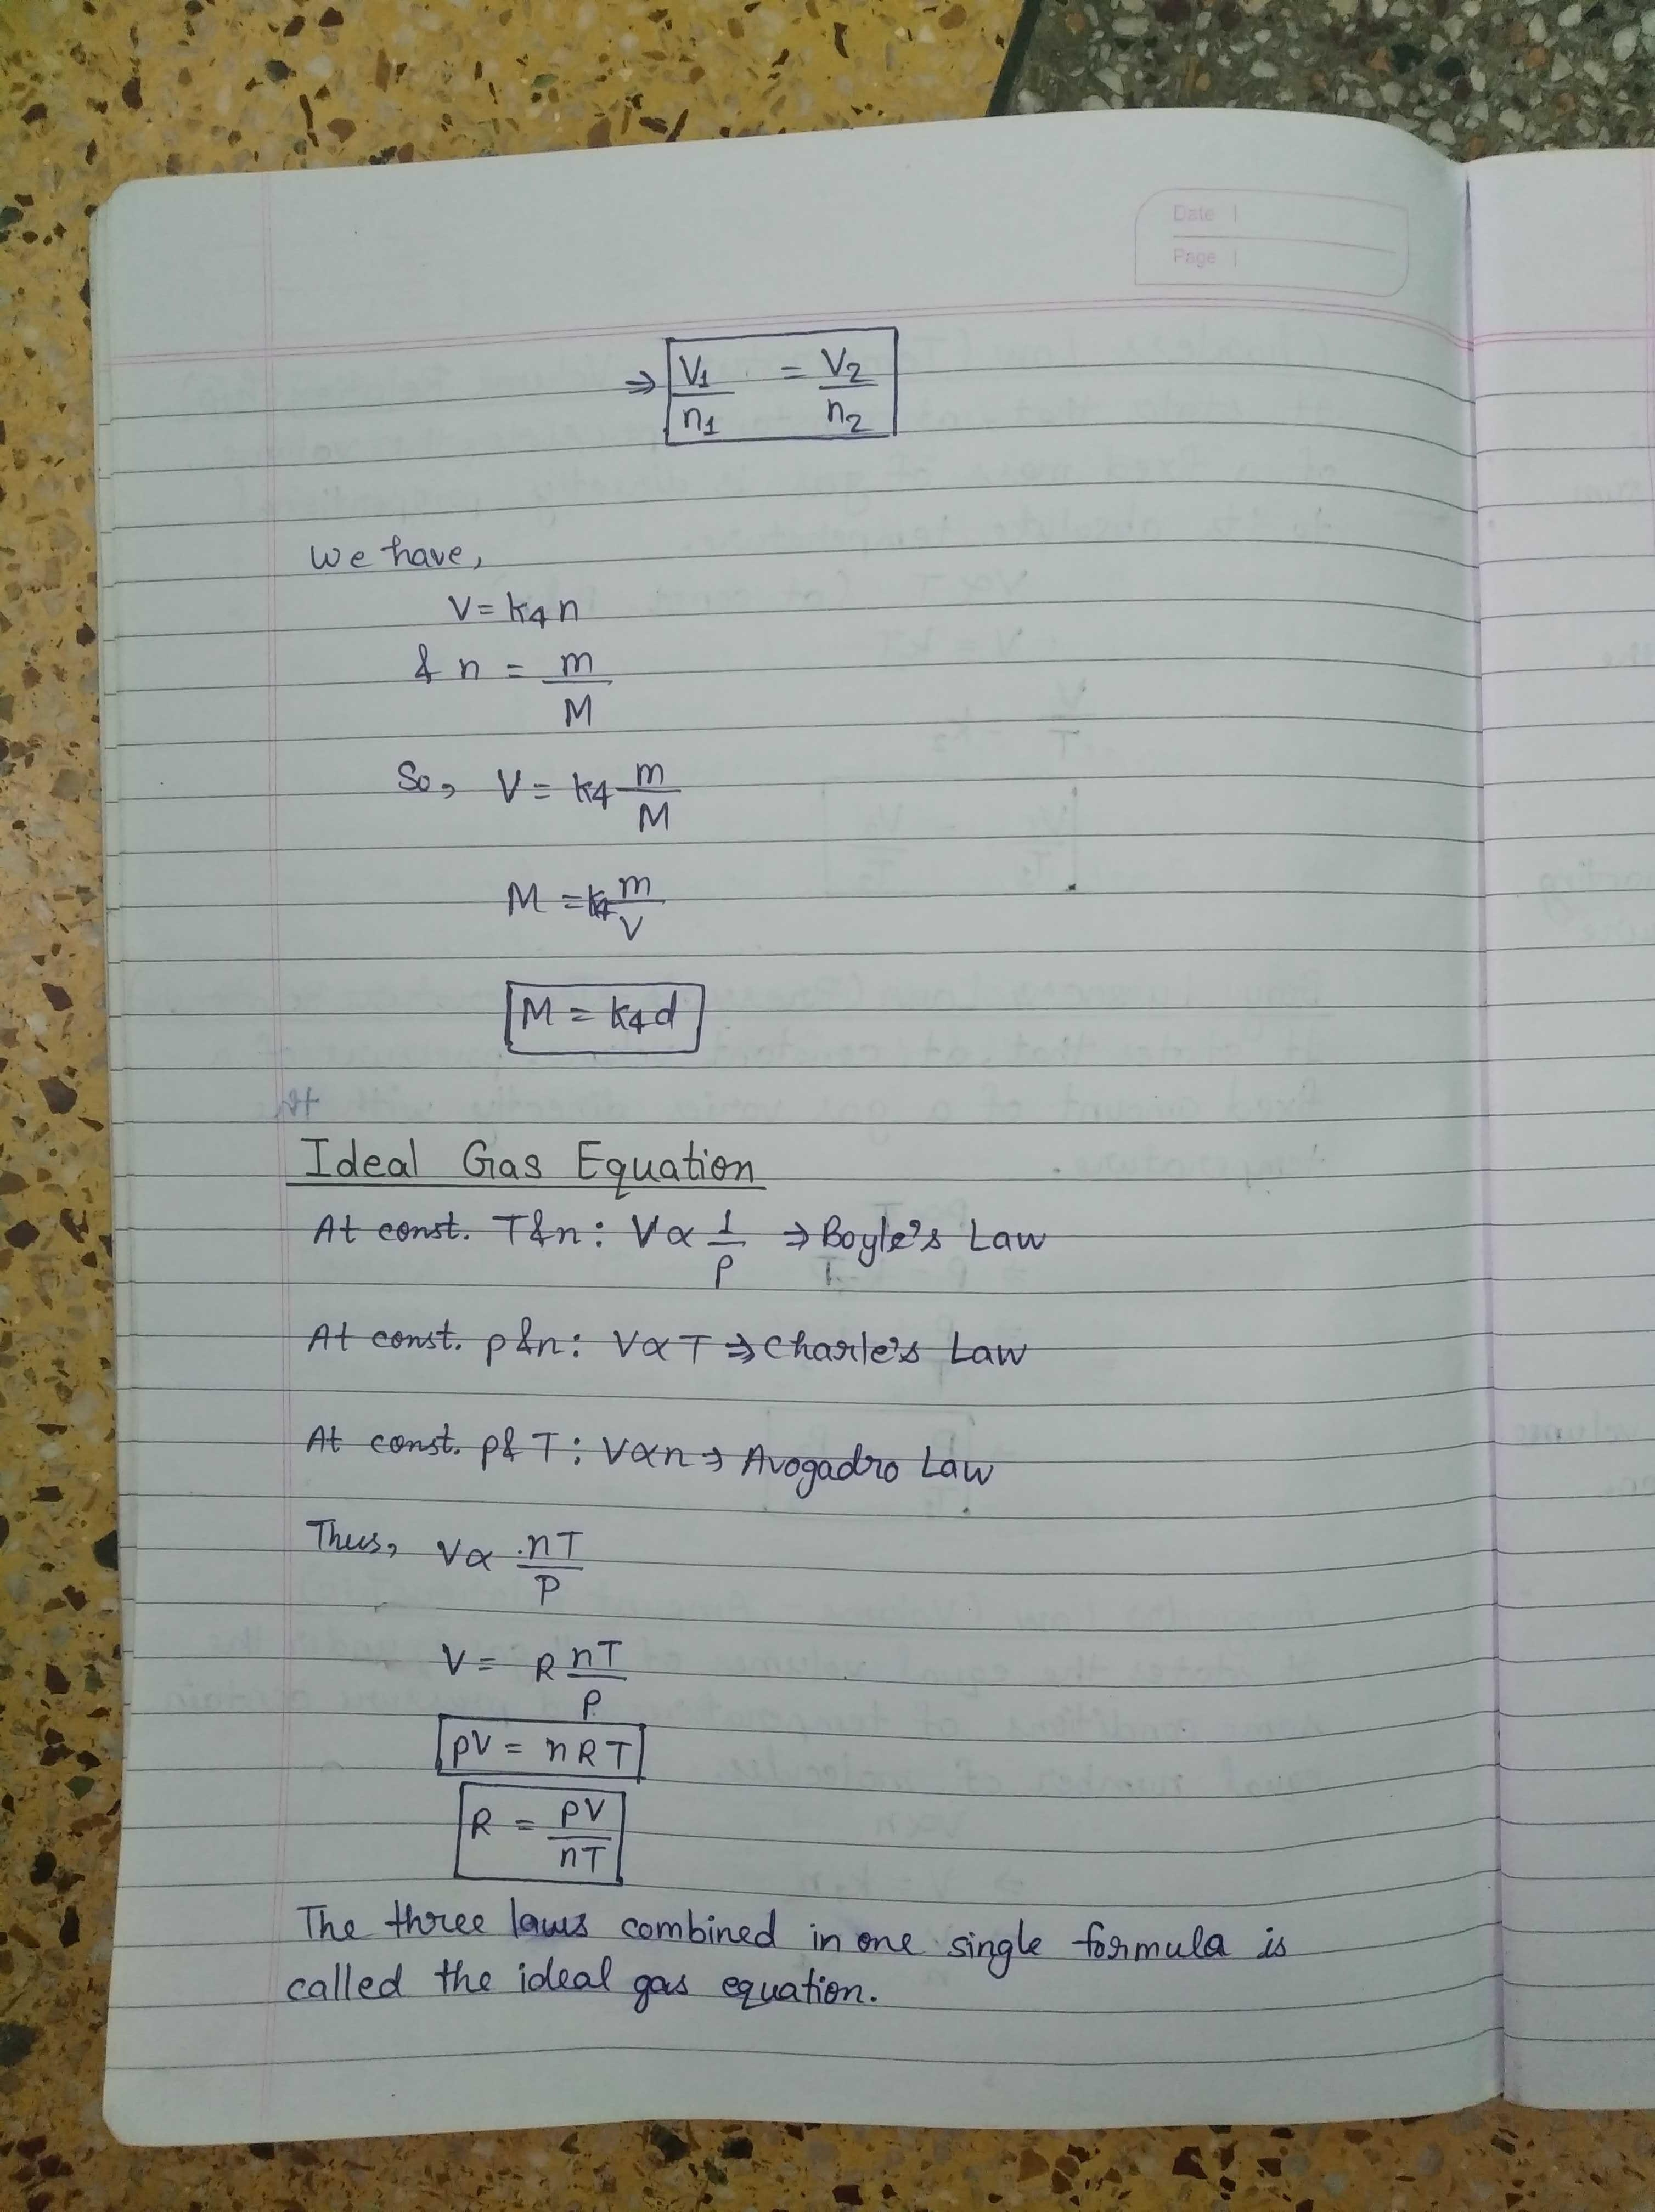 Date
Page
⇒ V1/n1 = V2/n2
We have,
V = k4 n
& n = m/M
So, V = k4 m/M
M = k4 m/V
M = k4 d
Ideal Gas Equation
At const. T&n : V ∝ 1/p ⇒ Boyle's Law
At const. p&n : V ∝ T ⇒ Charle's Law
At const. p& T : V ∝ n ⇒ Avogadro Law
Thus, V ∝ nT/P
V = R nT/P
pV = nRT
R = pV/nT
The three laws combined in one single formula is
called the ideal gas equation.